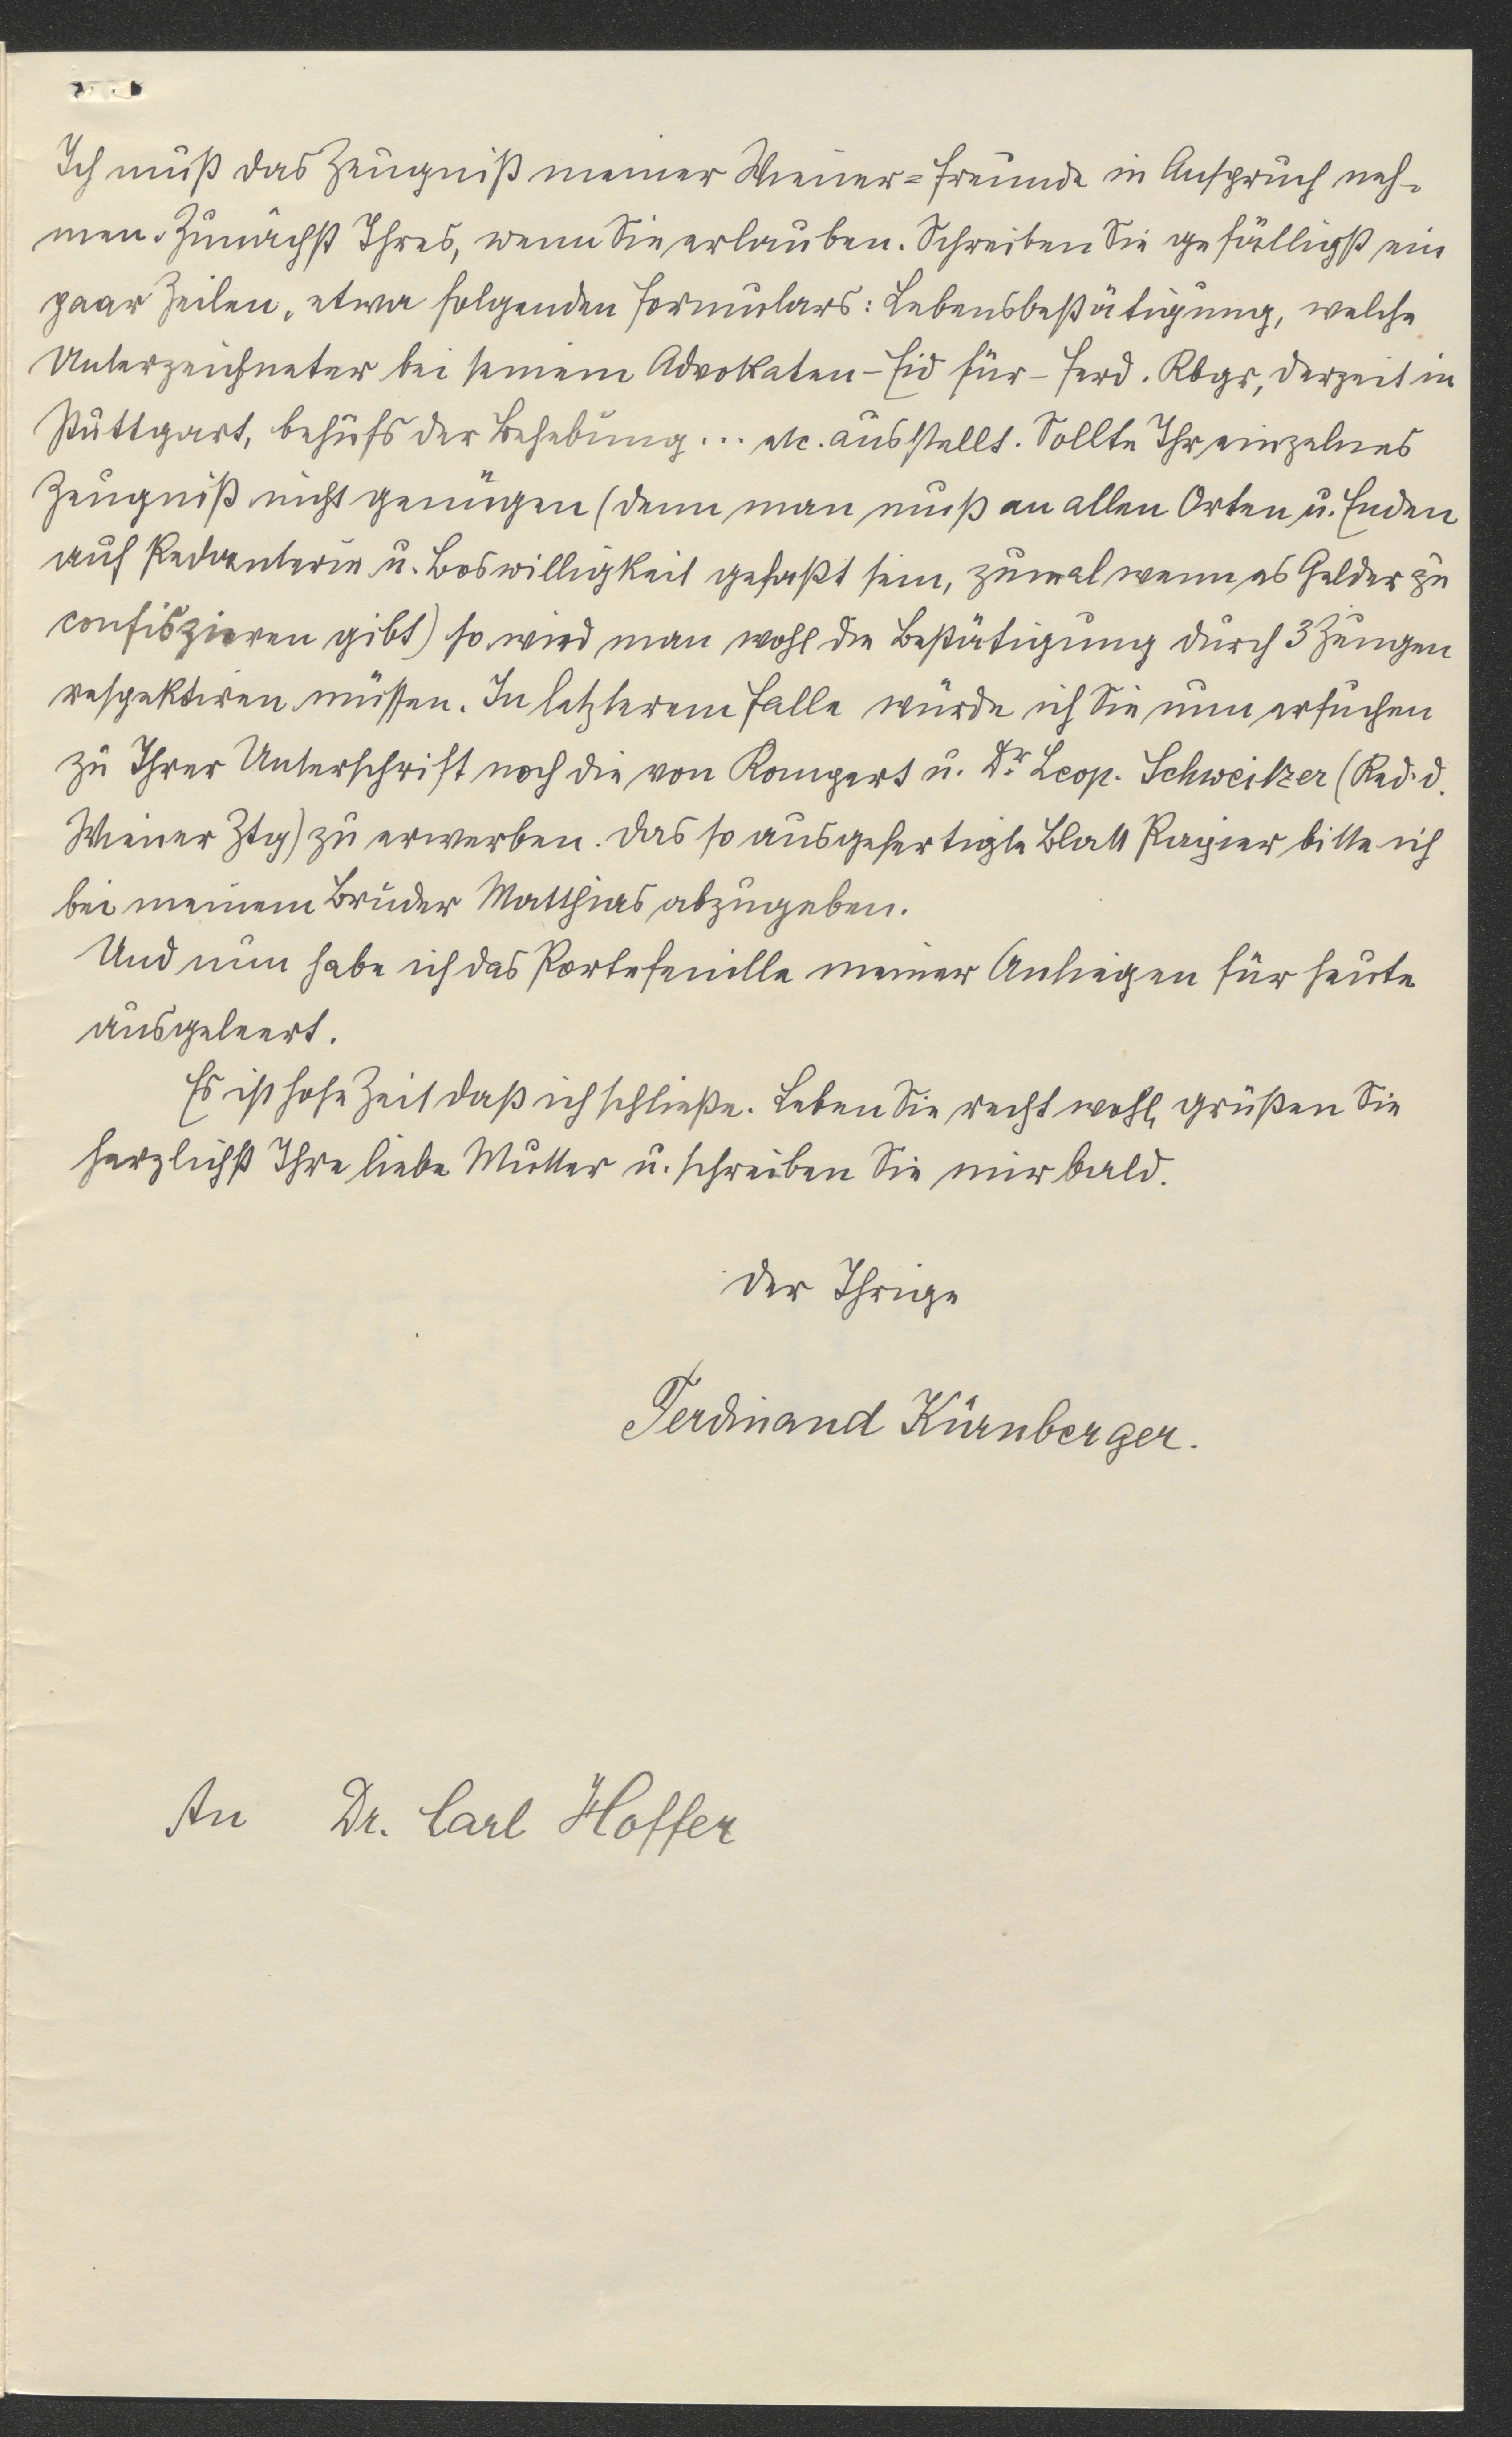 Ich muß das Zeugniß meiner Wiener=Freunde in Anspruch neh-
men. Zunächst Ihres, wenn Sie erlauben. Schreiben Sie gefälligst ein
paar Zeilen, etwa folgenden Formulars: Lebensbestätigung, welche
Unterzeichneter bei seinem Advokaten-Eid für - Ferd. Kbgr, derzeit in
Stuttgart, behufs der Behebung... etc. ausstellt. Sollte Ihr einzelnes
Zeugniß nicht genügen (denn man muß an allen Orten u. Enden
auf Pedanterie u. Boswilligkeit gefaßt sein, zumal wenn es Gelder zu
confiszieren gibt) so wird man wohl die Bestätigung durch 3 Zeugen
respektiren müssen. In letzterem Falle würde ich Sie nun ersuchen
zu Ihrer Unterschrift noch die von Kompert u. Dr. Leop. Schweitzer (Red. d.
Wiener Ztg) zu erwerben. Das so ausgefertigte Blatt Papier bitte ich
bei meinem Bruder Matthias abzugeben.
Und nun habe ich das Portefeuille meiner Anliegen für heute
ausgeleert.
Es ist hohe Zeit daß ich schließe. Leben Sie recht wohl, grüßen Sie
herzlichst Ihre liebe Mutter u. schreiben Sie mir bald.
Der Ihrige
Ferdinand Kürnberger.
An Dr. Carl Hoffer